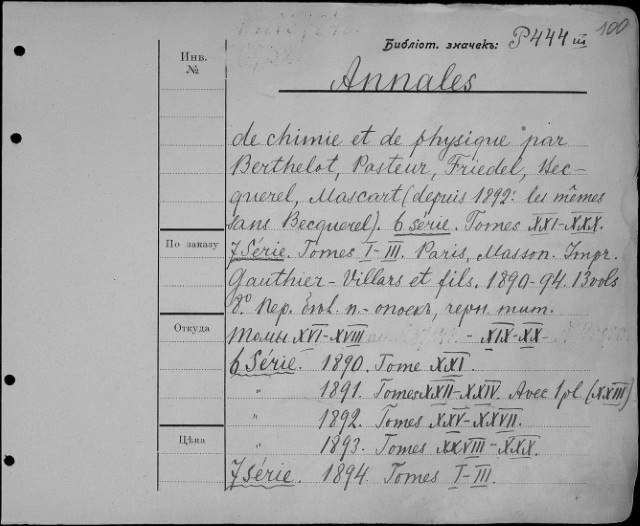 100
Библіот. значекъ: P444 III
Инв. №
Annales
de chimie et de physique par
Berthelot, Pasteur, Friedel, Bec-
querel, Mascart (depuis 1892: les mêmes
sans Becquerel). 6 série. Tomes XXI-XXX.
По заказу
7 Série. Tomes I-III. Paris, Masson. Impr.
Gauthier-Villars et fils. 1890-94. 13 vols
8º Пер. п.- черн. тит.
Откуда
Томы XVI-XVIII - XIX-XX-
6 Série. 1890. Tome XXI.
" 1891. Tomes XXII-XXIV. Avec 1 pl. (XXIII)
" 1892. Tomes XXV-XXVII.
Цѣна
" 1893. Tomes XXVIII-XXX.
7 Série. 1894. Tomes I-III.